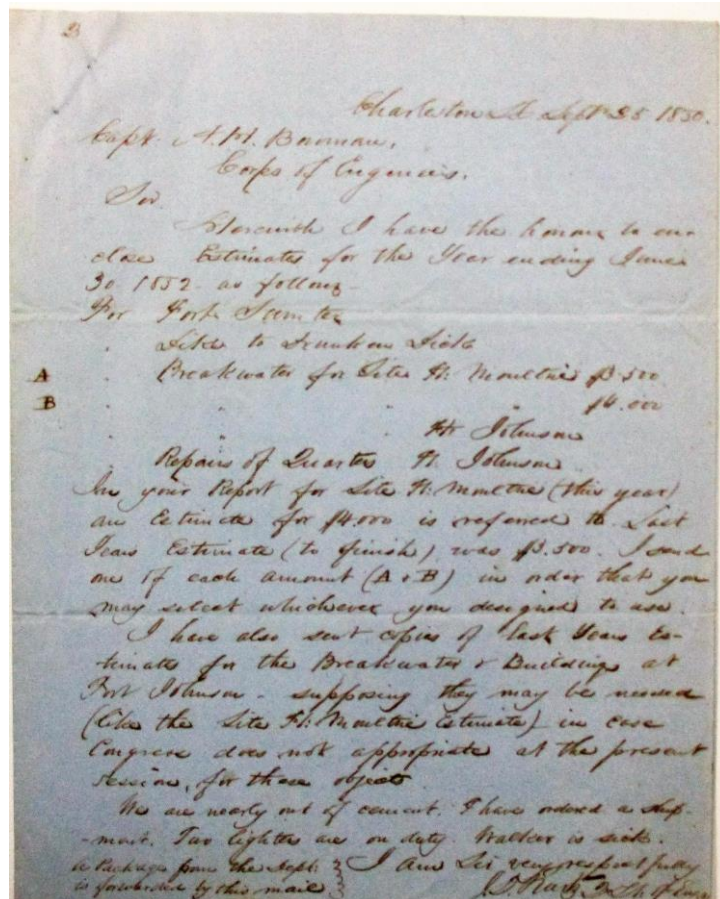 Charleston Sept 25 1850.
Capt. A. H. Bowman,
Corps of Engineers,
Sir
Herewith I have the honour to en-
close Estimates for the Year ending June
30 1852 as follows
For Fort Sumter
" Dike to Drunken Dick
A " Breakwater for Site Ft. Moultrie $3.500
B " " " " $4.000
" " " Ft Johnson
" Repairs of Quarter Ft. Johnson
In your Report for Site Ft. Moultrie (this year)
an Estimate for $4.000 is referred to. Last
Years Estimate (to finish) was $3.500. I send
one of each amount (A & B) in order that you
may select whichever you designed to use.
I have also sent copies of Last Years Es-
timates for the Breakwater & Buildings at
Fort Johnson - supposing they may be needed
(like the Site Ft. Moultrie Estimate) in case
Congress does not appropriate at the present
session, for these objects
We are nearly out of cement. I have ordered a ship-
-ment. Two lighters are on duty. Walker is sick.
a Package from the Dept. I am Sir very respectfully
is forwarded by this mail